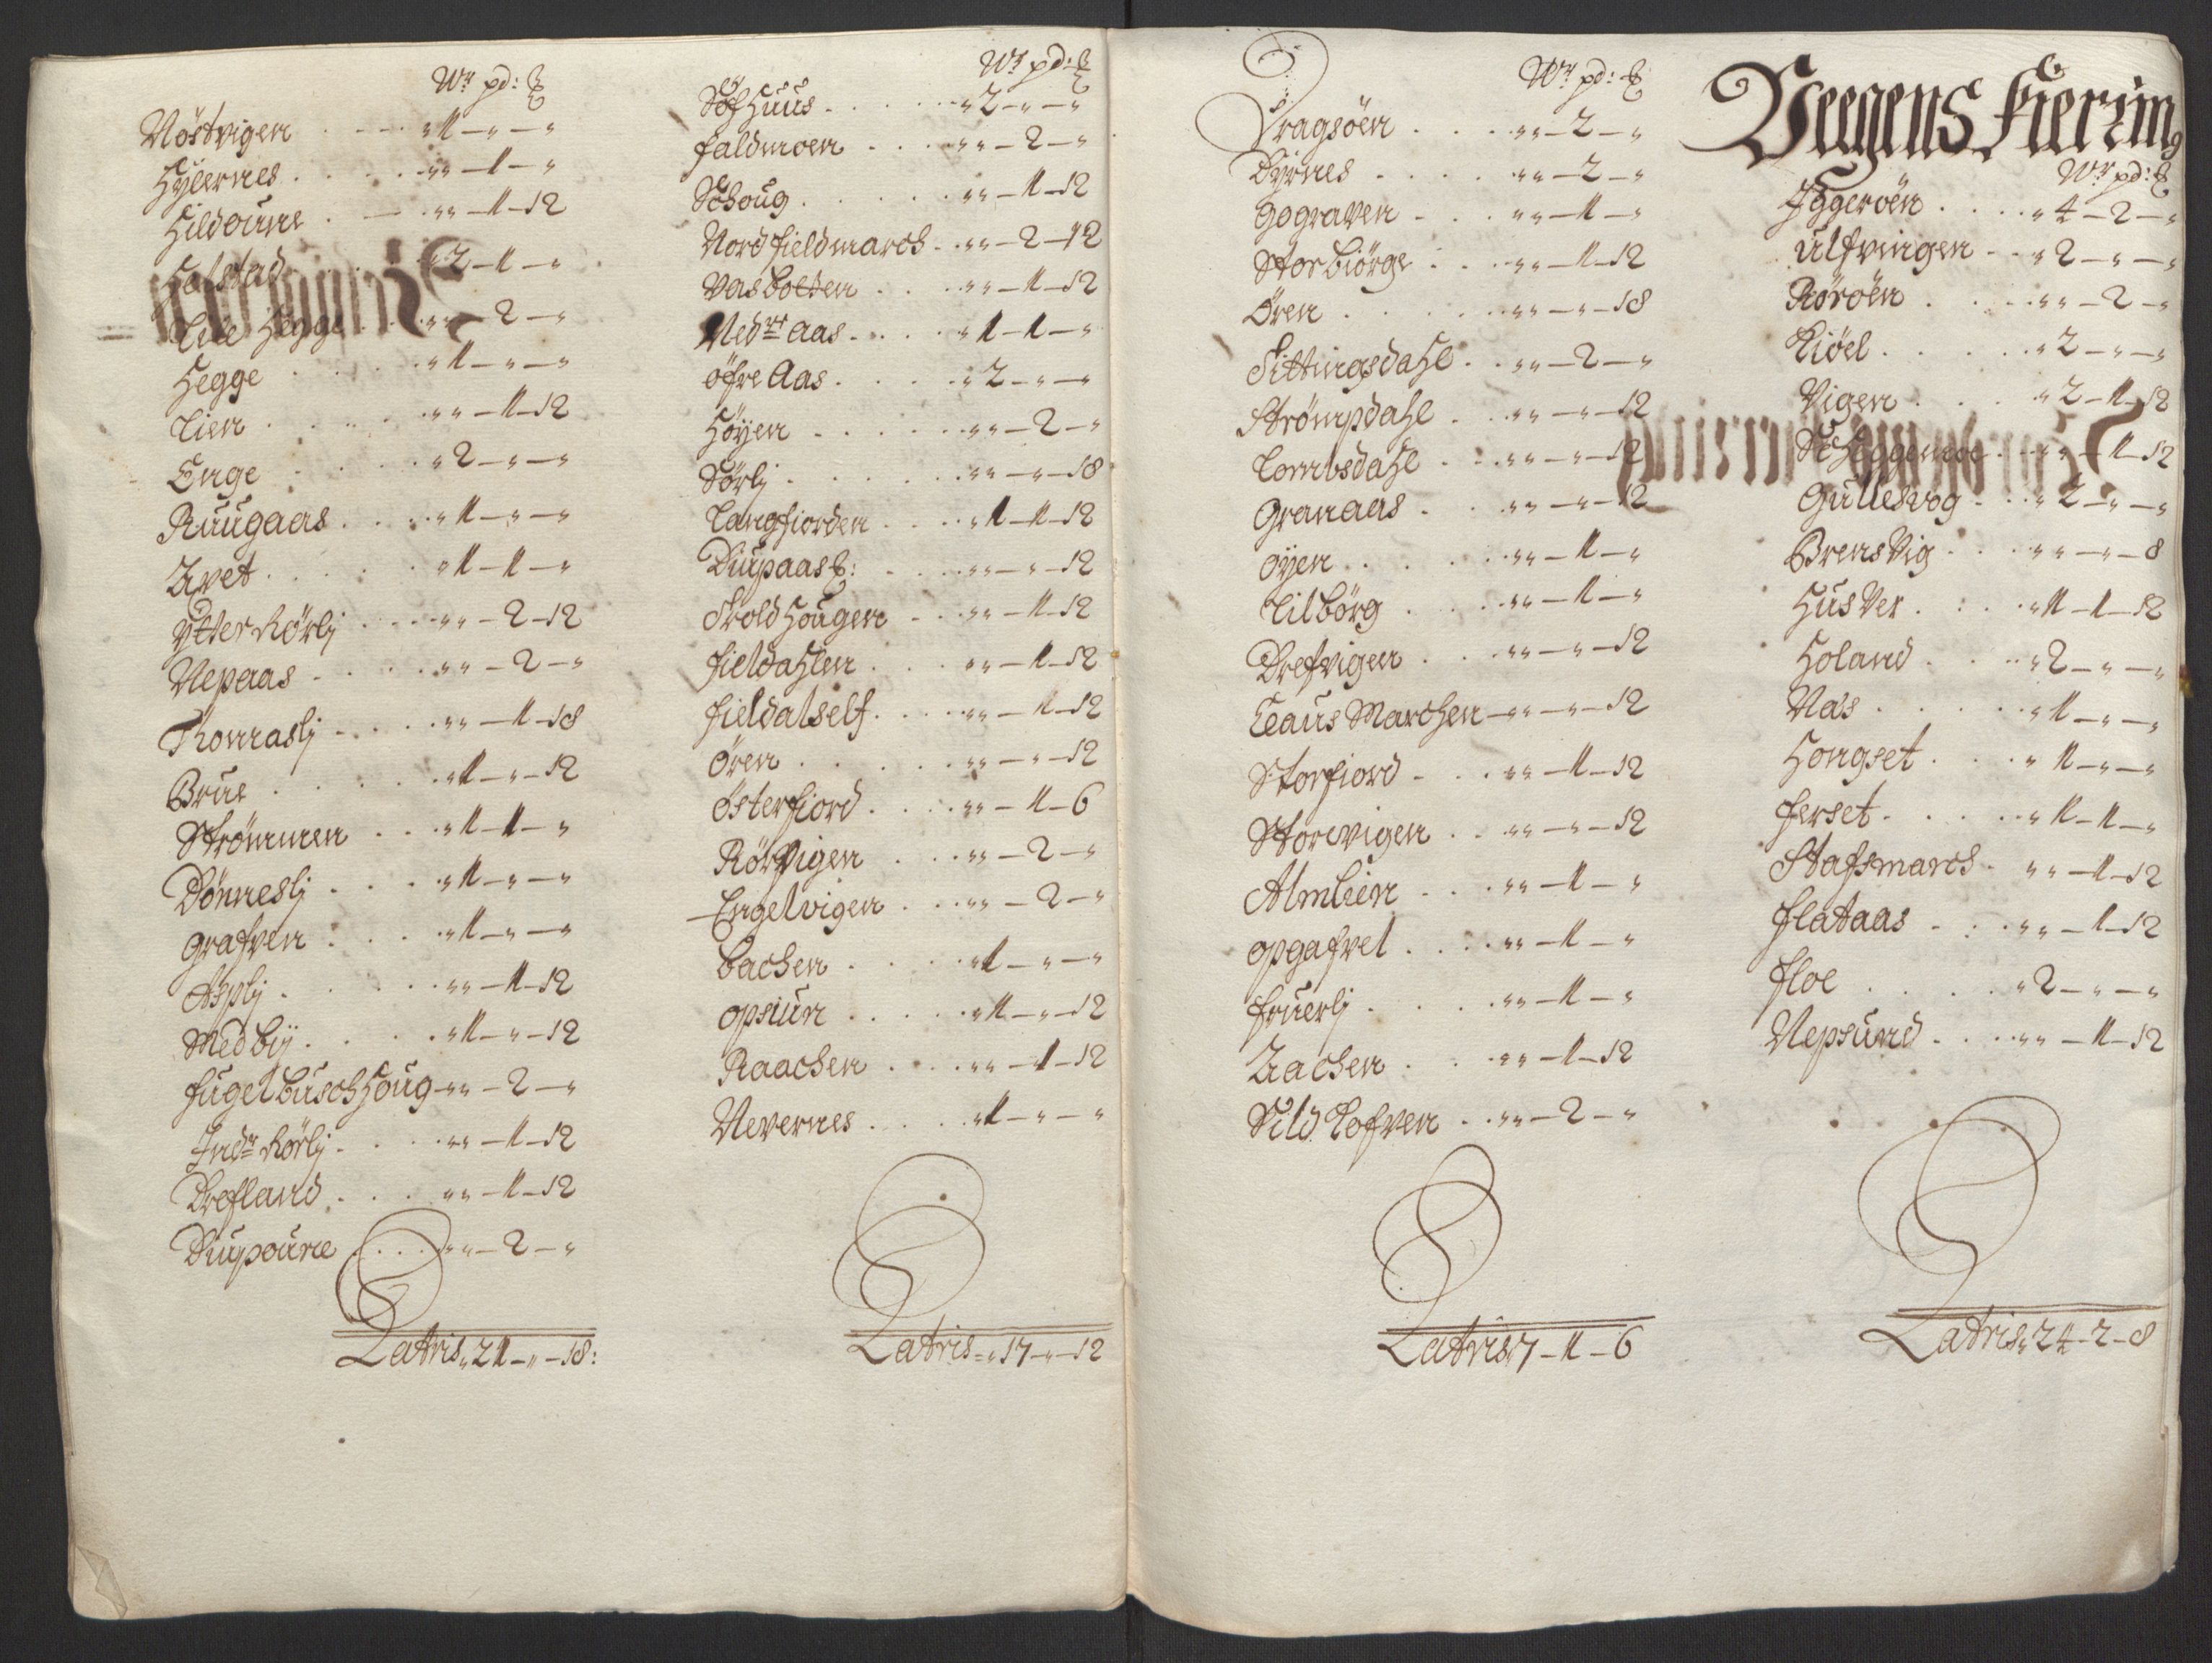 Wr pd: ℔
Nöstvigen . . . „ 1 - „ - „
Hylernes . . . „ „ - 1 - „
Hildoune . . . „ „ - 1 - 12
Halstad . . . „ 2 - 1 - „
Lile Hegge . . . „ „ - 2 - „
Hegge . . . „ 1 - „ - „
Lien . . . „ „ - 1 - 12
Enge . . . „ 2 - „ - „
Ruugaas . . . „ 1 - „ - „
Tvet . . . „ 1 - 1 - „
Ytter Rørlj . . . „ „ - 2 - 12
Nepaas . . . „ „ - 2 - „
Thonraslj . . . „ „ - 1 - 18
Brue . . . „ 1 - „ - 12
Strömmen . . . „ 1 - 1 - „
Dönneslj . . . „ 1 - „ - „
Grafven . . . „ 1 - „ - „
Asplj . . . „ „ - 1 - 12
Medbÿ . . . „ 1 - „ - 12
Fugelbusch Houg - „ „ - 2 - „
Indr Rørlj . . . „ „ - 1 - 12
Drefland . . . „ „ - 1 - 12
Diupoune . . . „ „ - 2 - „
Latris „ 21 - „ - 18:
Wr pd: ℔
Söfhuus . . . „ 2 - „ - „
Faldmoen . . . „ „ - 2 - „
Schoug . . . „ „ - 1 - 12
Nordfieldmarch . „ „ - 2 - 12
Vasbotten . . . „ „ - 1 - 12
Nedre Aas . . . „ 1 - 1 - „
öfre Aas . . . „ 2 - „ - „
Höyen . . . „ „ - 2 - „
Sörlj . . . „ „ - „ - 18
Langfiorden . . . „ 1 - 1 - 12
Diupaas B: . . . „ „ - „ - 12
Trold Hougen . . . „ „ - 1 - 12
Fieldahlen . . . „ „ - 1 - 12
Fieldalself . . . „ „ - 1 - 12
Ören . . . „ „ - „ - 12
Österfiord . . . „ „ - 1 - 6
Rörvigen . . . „ „ - 2 - „
Engelvigen . . . „ „ - 2 - „
Bachen . . . „ 1 - „ - „
Opsiun . . . „ 1 - „ - 12
Raachen . . . „ „ - 1 - 12
Nevernes . . . „ 1 - „ - „
Latris - „ 17 - „ - 12
Wr pd: ℔
Dragsöen . . . „ „ - 2 - „
Dyrnes . . . „ „ - 2 - „
Gograven . . . „ „ - 1 - „
Storbiörge . . . „ „ - 1 - 12
Ören . . . „ „ - „ - 18
Sittingsdahl . . „ „ - 2 - „
Strömpdahl . . . „ „ - „ - 12
Lombsdahl . . . „ „ - „ - 12
Granaas . . . „ „ - „ - 12
Öyen . . . „ „ - 1 - „
Lilbörg . . . „ „ - 1 - „
Drefvigen . . . „ „ - „ - 12
Claus Marchen - „ „ - „ - 12
Storfiord . . . „ „ - 1 - 12
Storevigen . . „ „ - „ - 12
Almlien . . . „ „ - 1 - „
Opgafvel . . . „ „ - 1 - „
Fruerlj . . . „ „ - 1 - „
Tachen . . . „ „ - 1 - 12
Sild Lofven . . „ „ - 2 - „
Latris „ 7 - 1 - 6
Veegens Fierring
Wr pd: ℔
Iggeröen . . . „ 4 - 2 - „
Ulfvingen . . „ 2 - „ - „
Röröen . . . „ „ - 2 - „
Kiöel . . . „ 2 - „ - „
Vigen . . . „ 2 - 1 - 12
Scheggemoe . . „ „ - 1 - 12
Gullesvog . . . „ 2 - „ - „
Brensvig . . . „ „ - „ - 8
Husver . . . „ 1 - 1 - 12
Holand . . . „ 2 - „ - „
Nas . . . „ 1 - „ - „
Hongset . . . „ 1 - „ - „
Ferset . . . „ 1 - 1 - „
Stafsmarch . „ „ - 1 - 12
Flataas . . . „ „ - 1 - 12
Floe . . . „ 2 - „ - „
Nepsund . . . „ „ - 1 - 12
Latris „ 24 - 2 - 8